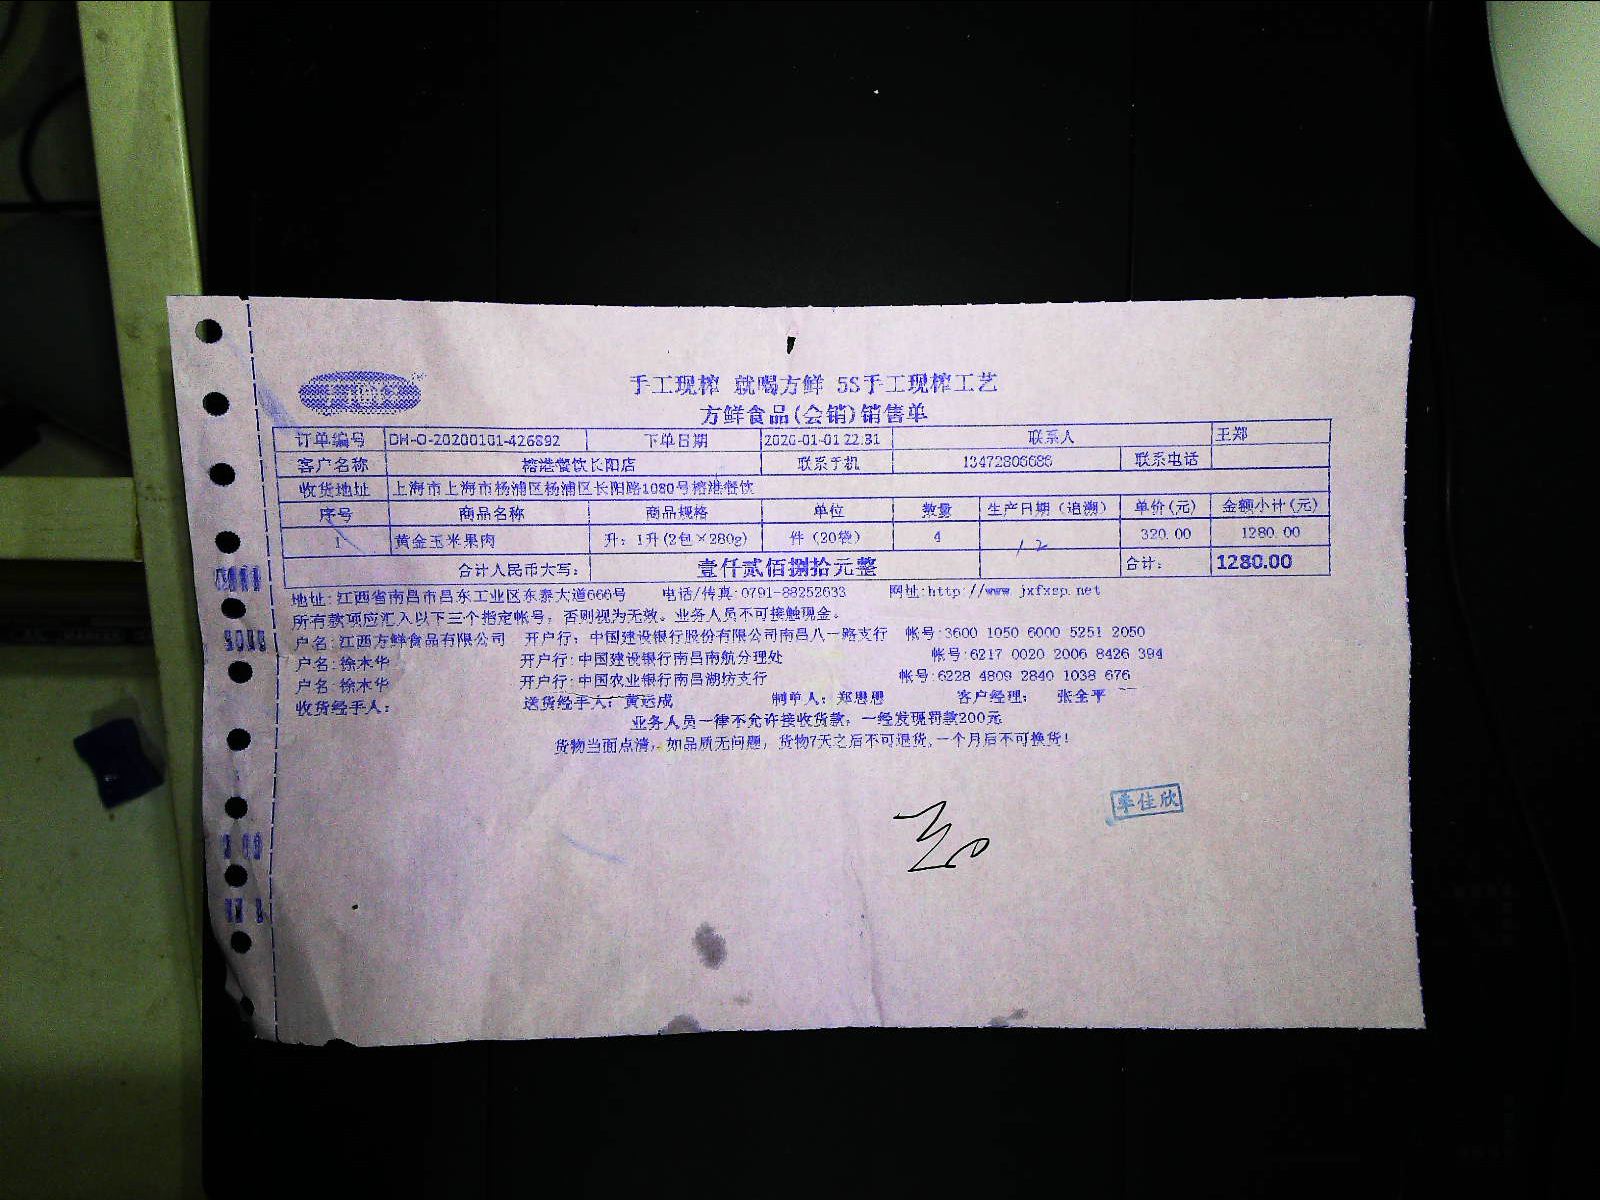 手工现榨 就喝方鲜 5S手工现榨工艺
方鲜食品(会销)销售单
订单编号 DH-O-20200101-426892 下单日期 2020-01-01 22:31 联系人 王郑
客户名称 榕港餐饮长阳店 联系手机 13472806686 联系电话
收货地址 上海市上海市杨浦区杨浦区长阳路1080号榕港餐饮
序号 商品名称 商品规格 单位 数量 生产日期（追溯） 单价(元) 金额小计(元)
1 黄金玉米果肉 升：1升(2包×280g) 件（20袋） 4 12 320.00 1280.00
合计人民币大写： 壹仟贰佰捌拾元整 合计： 1280.00
地址:江西省南昌市昌东工业区东泰大道666号 电话/传真:0791-88252633 网址:http://www.jxfxsp.net
所有款项应汇入以下三个指定帐号，否则视为无效。业务人员不可接触现金。
户名:江西方鲜食品有限公司 开户行：中国建设银行股份有限公司南昌八一路支行 帐号:3600 1050 6000 5251 2050
户名:徐木华 开户行:中国建设银行南昌南航分理处 帐号:6217 0020 2006 8426 394
户名:徐木华 开户行:中国农业银行南昌湖坊支行 帐号:6228 4809 2840 1038 676
收货经手人： 送货经手人：黄运成 制单人：郑思思 客户经理： 张全平
业务人员一律不允许接收货款，一经发现罚款200元
货物当面点清，如品质无问题，货物7天之后不可退货,一个月后不可换货!
牟佳欣